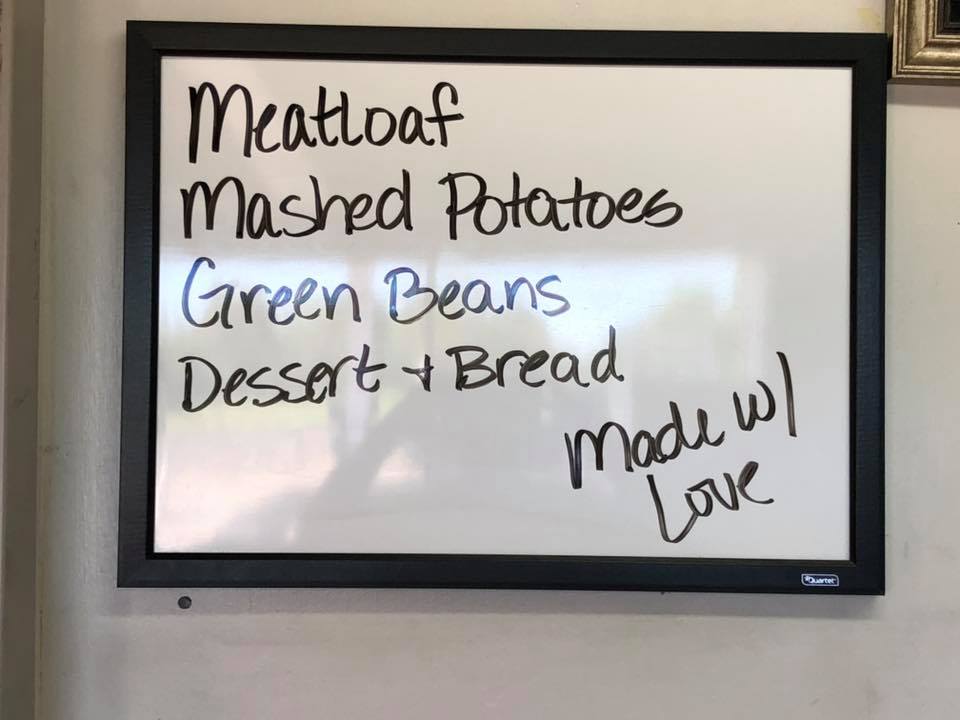 Meatloaf
Mashed Potatoes
Green Beans
Dessert + Bread
Made w/
Love
Quartet